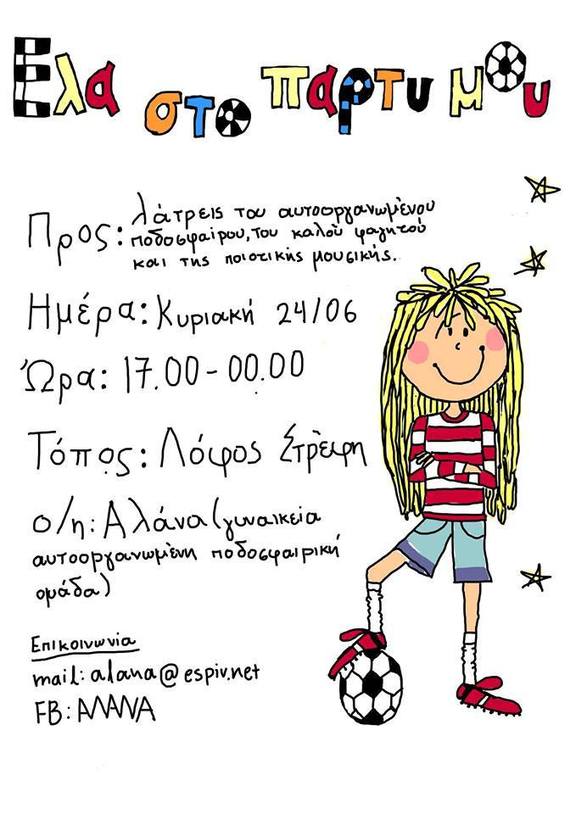 Ελα στο παρτυ μου
Προς: λάτρεις του αυτοοργανωμένου
ποδοσφαίρου, του καλού φαγητού
και της ποιοτικής μουσικής.
Ημέρα: Κυριακή 24/06
Ώρα: 17.00 - 00.00
Τόπος: Λόφος Στρέφη
ο/η: Αλάνα (γυναικεία
αυτοοργανωμένη ποδοσφαιρική
ομάδα)
Επικοινωνία
mail: alana@espiv.net
FB: ΑΛΑΝΑ